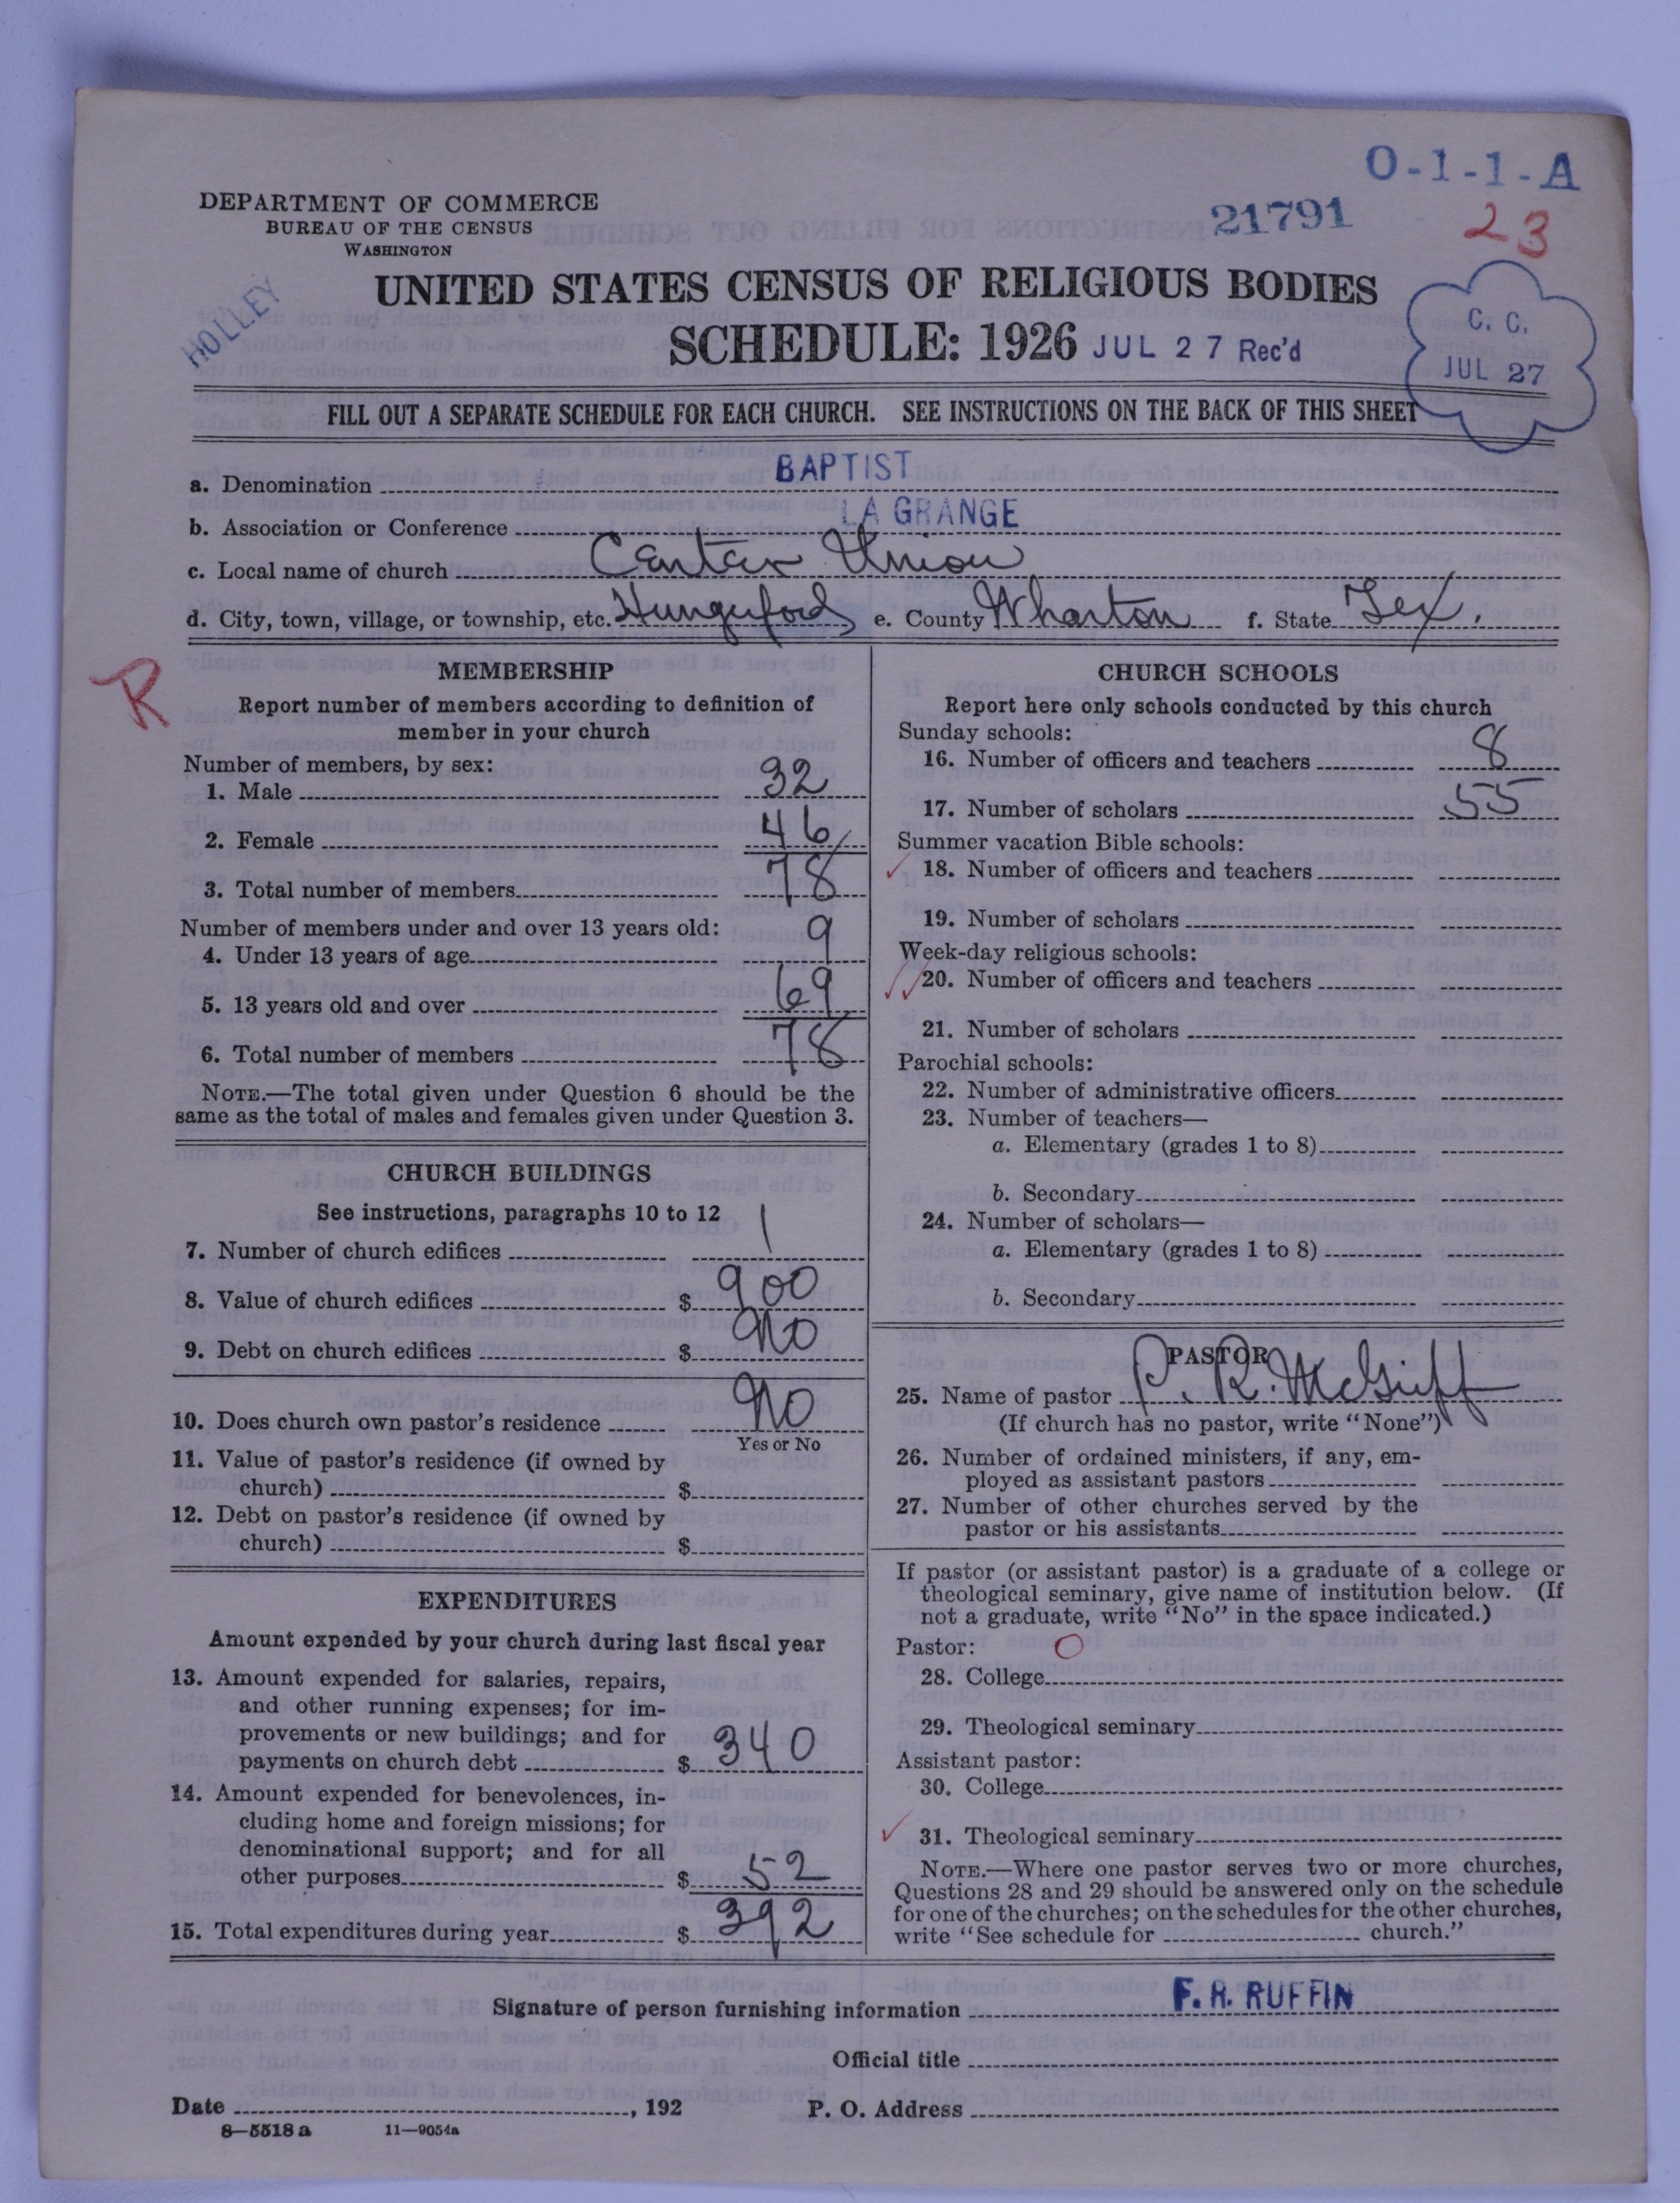 O-1-1-A
DEPARTMENT OF COMMERCE
BUREAU OF THE CENSUS
WASHINGTON
21791
23
HOLLEY
UNITED STATES CENSUS OF RELIGIOUS BODIES
SCHEDULE: 1926 JUL 27 Rec'd
C. C.
JUL 27
FILL OUT A SEPARATE SCHEDULE FOR EACH CHURCH. SEE INSTRUCTIONS ON THE BACK OF THIS SHEET
a. Denomination BAPTIST
b. Association or Conference LA GRANGE
c. Local name of church Center Union
d. City, town, village, or township, etc. Hungerford e. County Wharton f. State Tex.
R
MEMBERSHIP
Report number of members according to definition of
member in your church
Number of members, by sex:
1. Male 32
2. Female 46
3. Total number of members 78
Number of members under and over 13 years old:
4. Under 13 years of age 9
5. 13 years old and over 69
6. Total number of members 78
NOTE.—The total given under Question 6 should be the
same as the total of males and females given under Question 3.
CHURCH BUILDINGS
See instructions, paragraphs 10 to 12
7. Number of church edifices 1
8. Value of church edifices $ 900
9. Debt on church edifices $ No
10. Does church own pastor's residence No
Yes or No
11. Value of pastor's residence (if owned by
church) $
12. Debt on pastor's residence (if owned by
church) $
EXPENDITURES
Amount expended by your church during last fiscal year
13. Amount expended for salaries, repairs,
and other running expenses; for im-
provements or new buildings; and for
payments on church debt $ 340
14. Amount expended for benevolences, in-
cluding home and foreign missions; for
denominational support; and for all
other purposes $ 52
15. Total expenditures during year $ 392
CHURCH SCHOOLS
Report here only schools conducted by this church
Sunday schools:
16. Number of officers and teachers 8
17. Number of scholars 55
Summer vacation Bible schools:
18. Number of officers and teachers
19. Number of scholars
Week-day religious schools:
20. Number of officers and teachers
21. Number of scholars
Parochial schools:
22. Number of administrative officers
23. Number of teachers—
a. Elementary (grades 1 to 8)
b. Secondary
24. Number of scholars—
a. Elementary (grades 1 to 8)
b. Secondary
PASTOR
25. Name of pastor P. R. McGriff
(If church has no pastor, write "None")
26. Number of ordained ministers, if any, em-
ployed as assistant pastors
27. Number of other churches served by the
pastor or his assistants
If pastor (or assistant pastor) is a graduate of a college or
theological seminary, give name of institution below. (If
not a graduate, write "No" in the space indicated.)
Pastor: O
28. College
29. Theological seminary
Assistant pastor:
30. College
31. Theological seminary
NOTE.—Where one pastor serves two or more churches,
Questions 28 and 29 should be answered only on the schedule
for one of the churches; on the schedules for the other churches,
write "See schedule for church."
Signature of person furnishing information F. R. RUFFIN
Official title
Date , 192 P. O. Address
8—5518 a 11—9054a